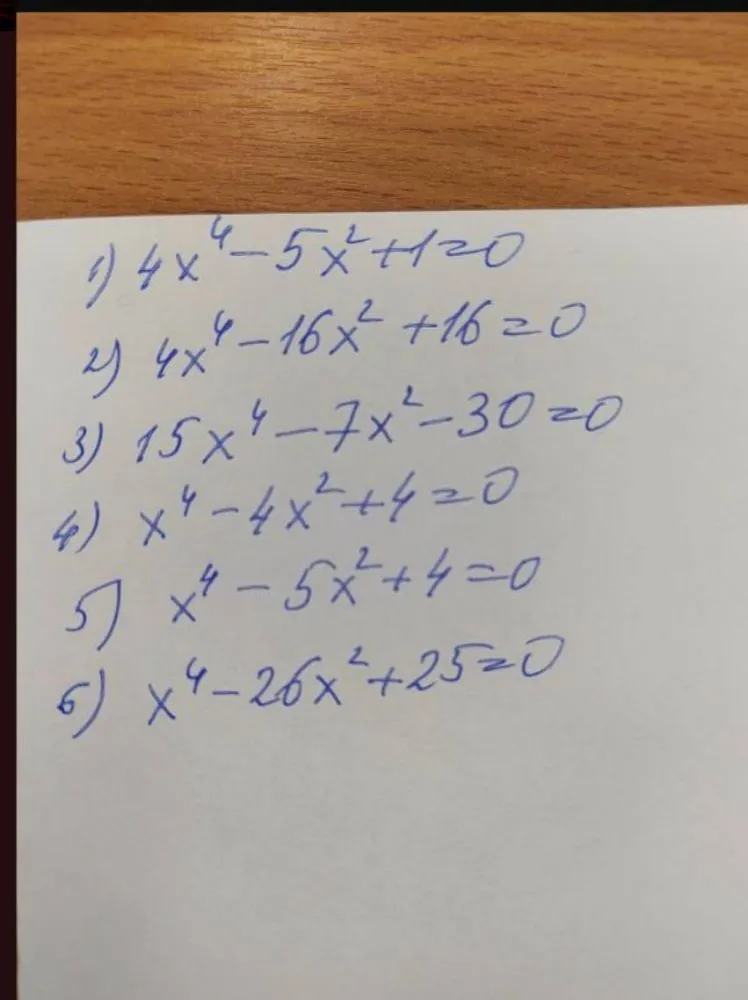 1) 4x⁴ - 5x² + 1 = 0
2) 4x⁴ - 16x² + 16 = 0
3) 15x⁴ - 7x² - 30 = 0
4) x⁴ - 4x² + 4 = 0
5) x⁴ - 5x² + 4 = 0
6) x⁴ - 26x² + 25 = 0